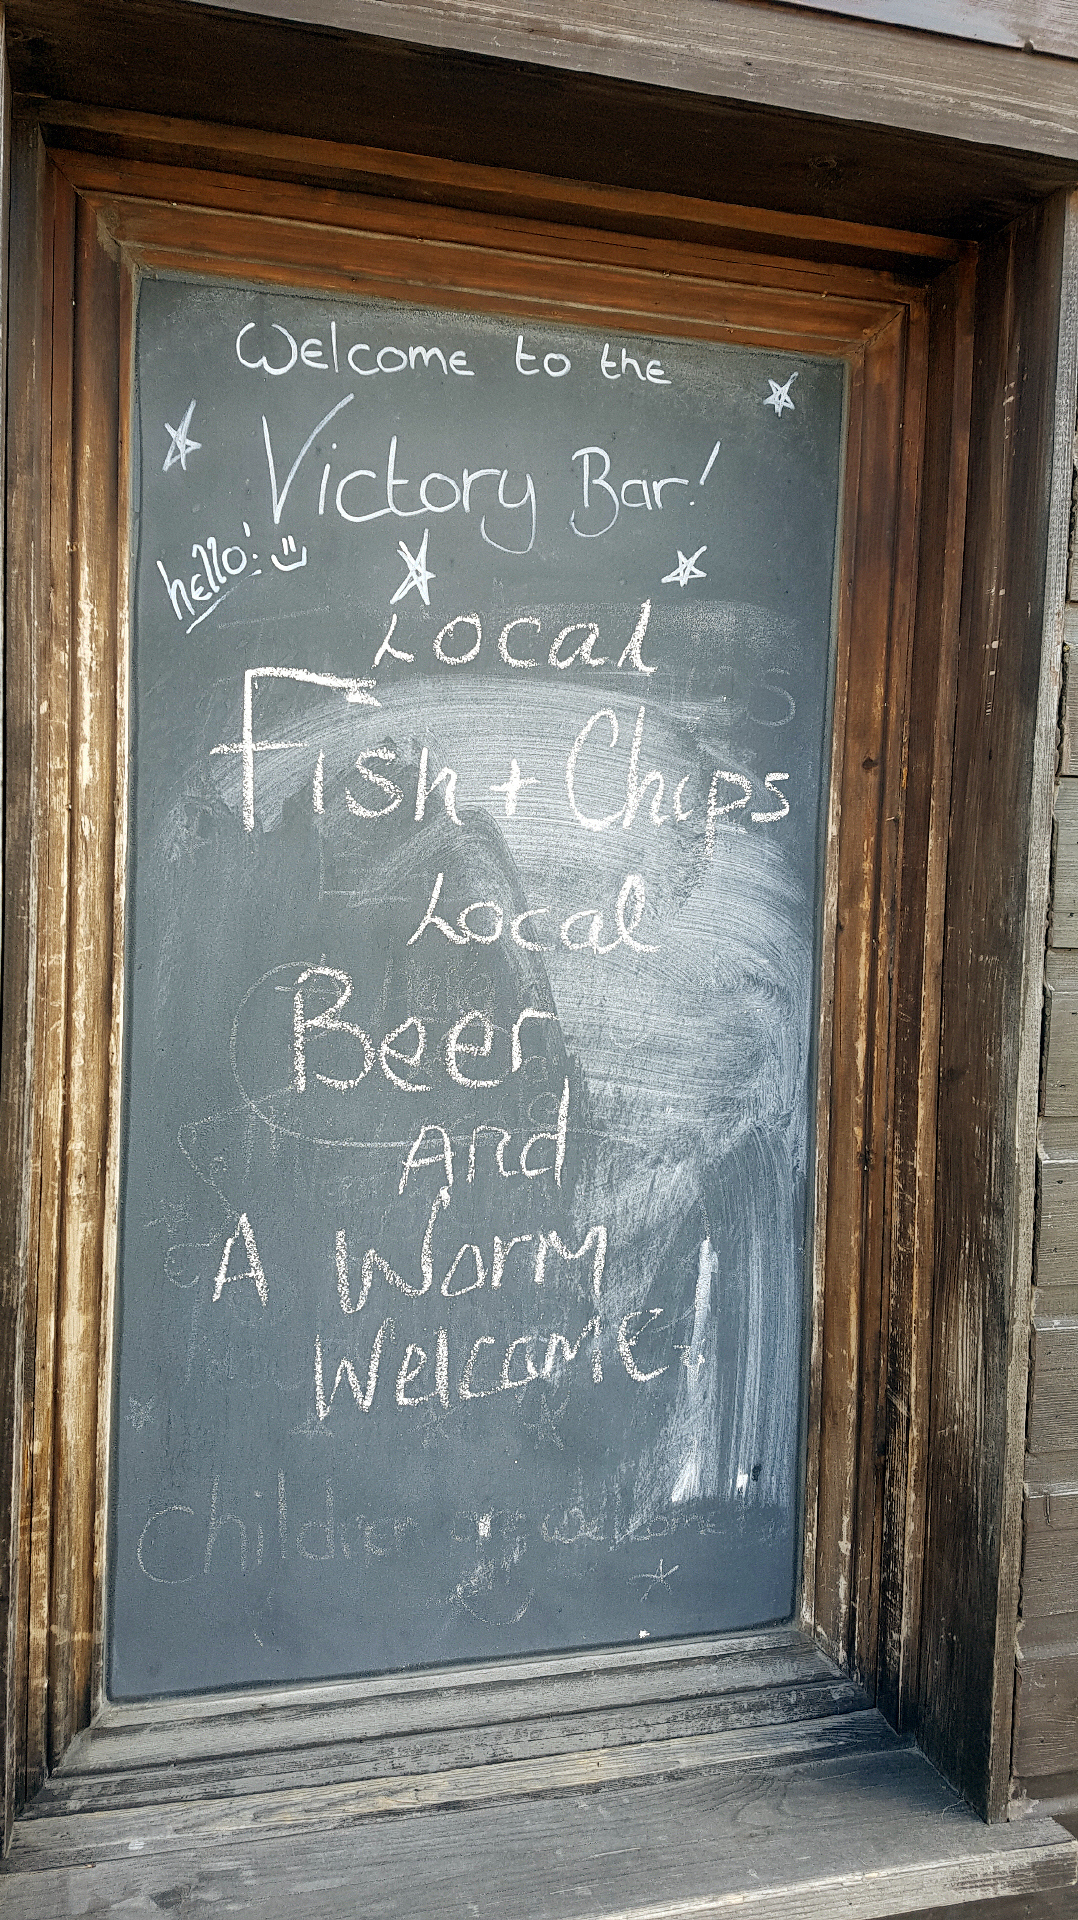 Welcome to the
Victory Bar!
hello!
Local
Fish + Chips
Local
Beer
And
A Worm
Welcome!
Children are welcome